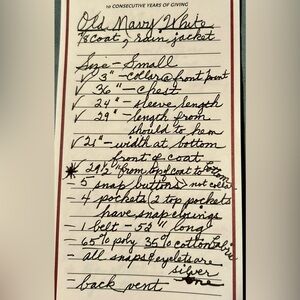 10 CONSECUTIVE YEARS OF GIVING
Old Navy White
7/8 coat, rain jacket
Size - Small
✓ 3" - collar @ front point
✓ 36" - chest
✓ 24" - sleeve length
✓ 29" - length from
should to hem
✓ 21" - width at bottom
front of coat
* 29 1/2" from top of coat to bottom
- 5 snap buttons) not collar
- 4 pockets (2 top pockets
have snap closings
- 1 belt - 52" long
- 65% poly 35% cotton
- all snaps & eyelets are
silver
tone
- back vent